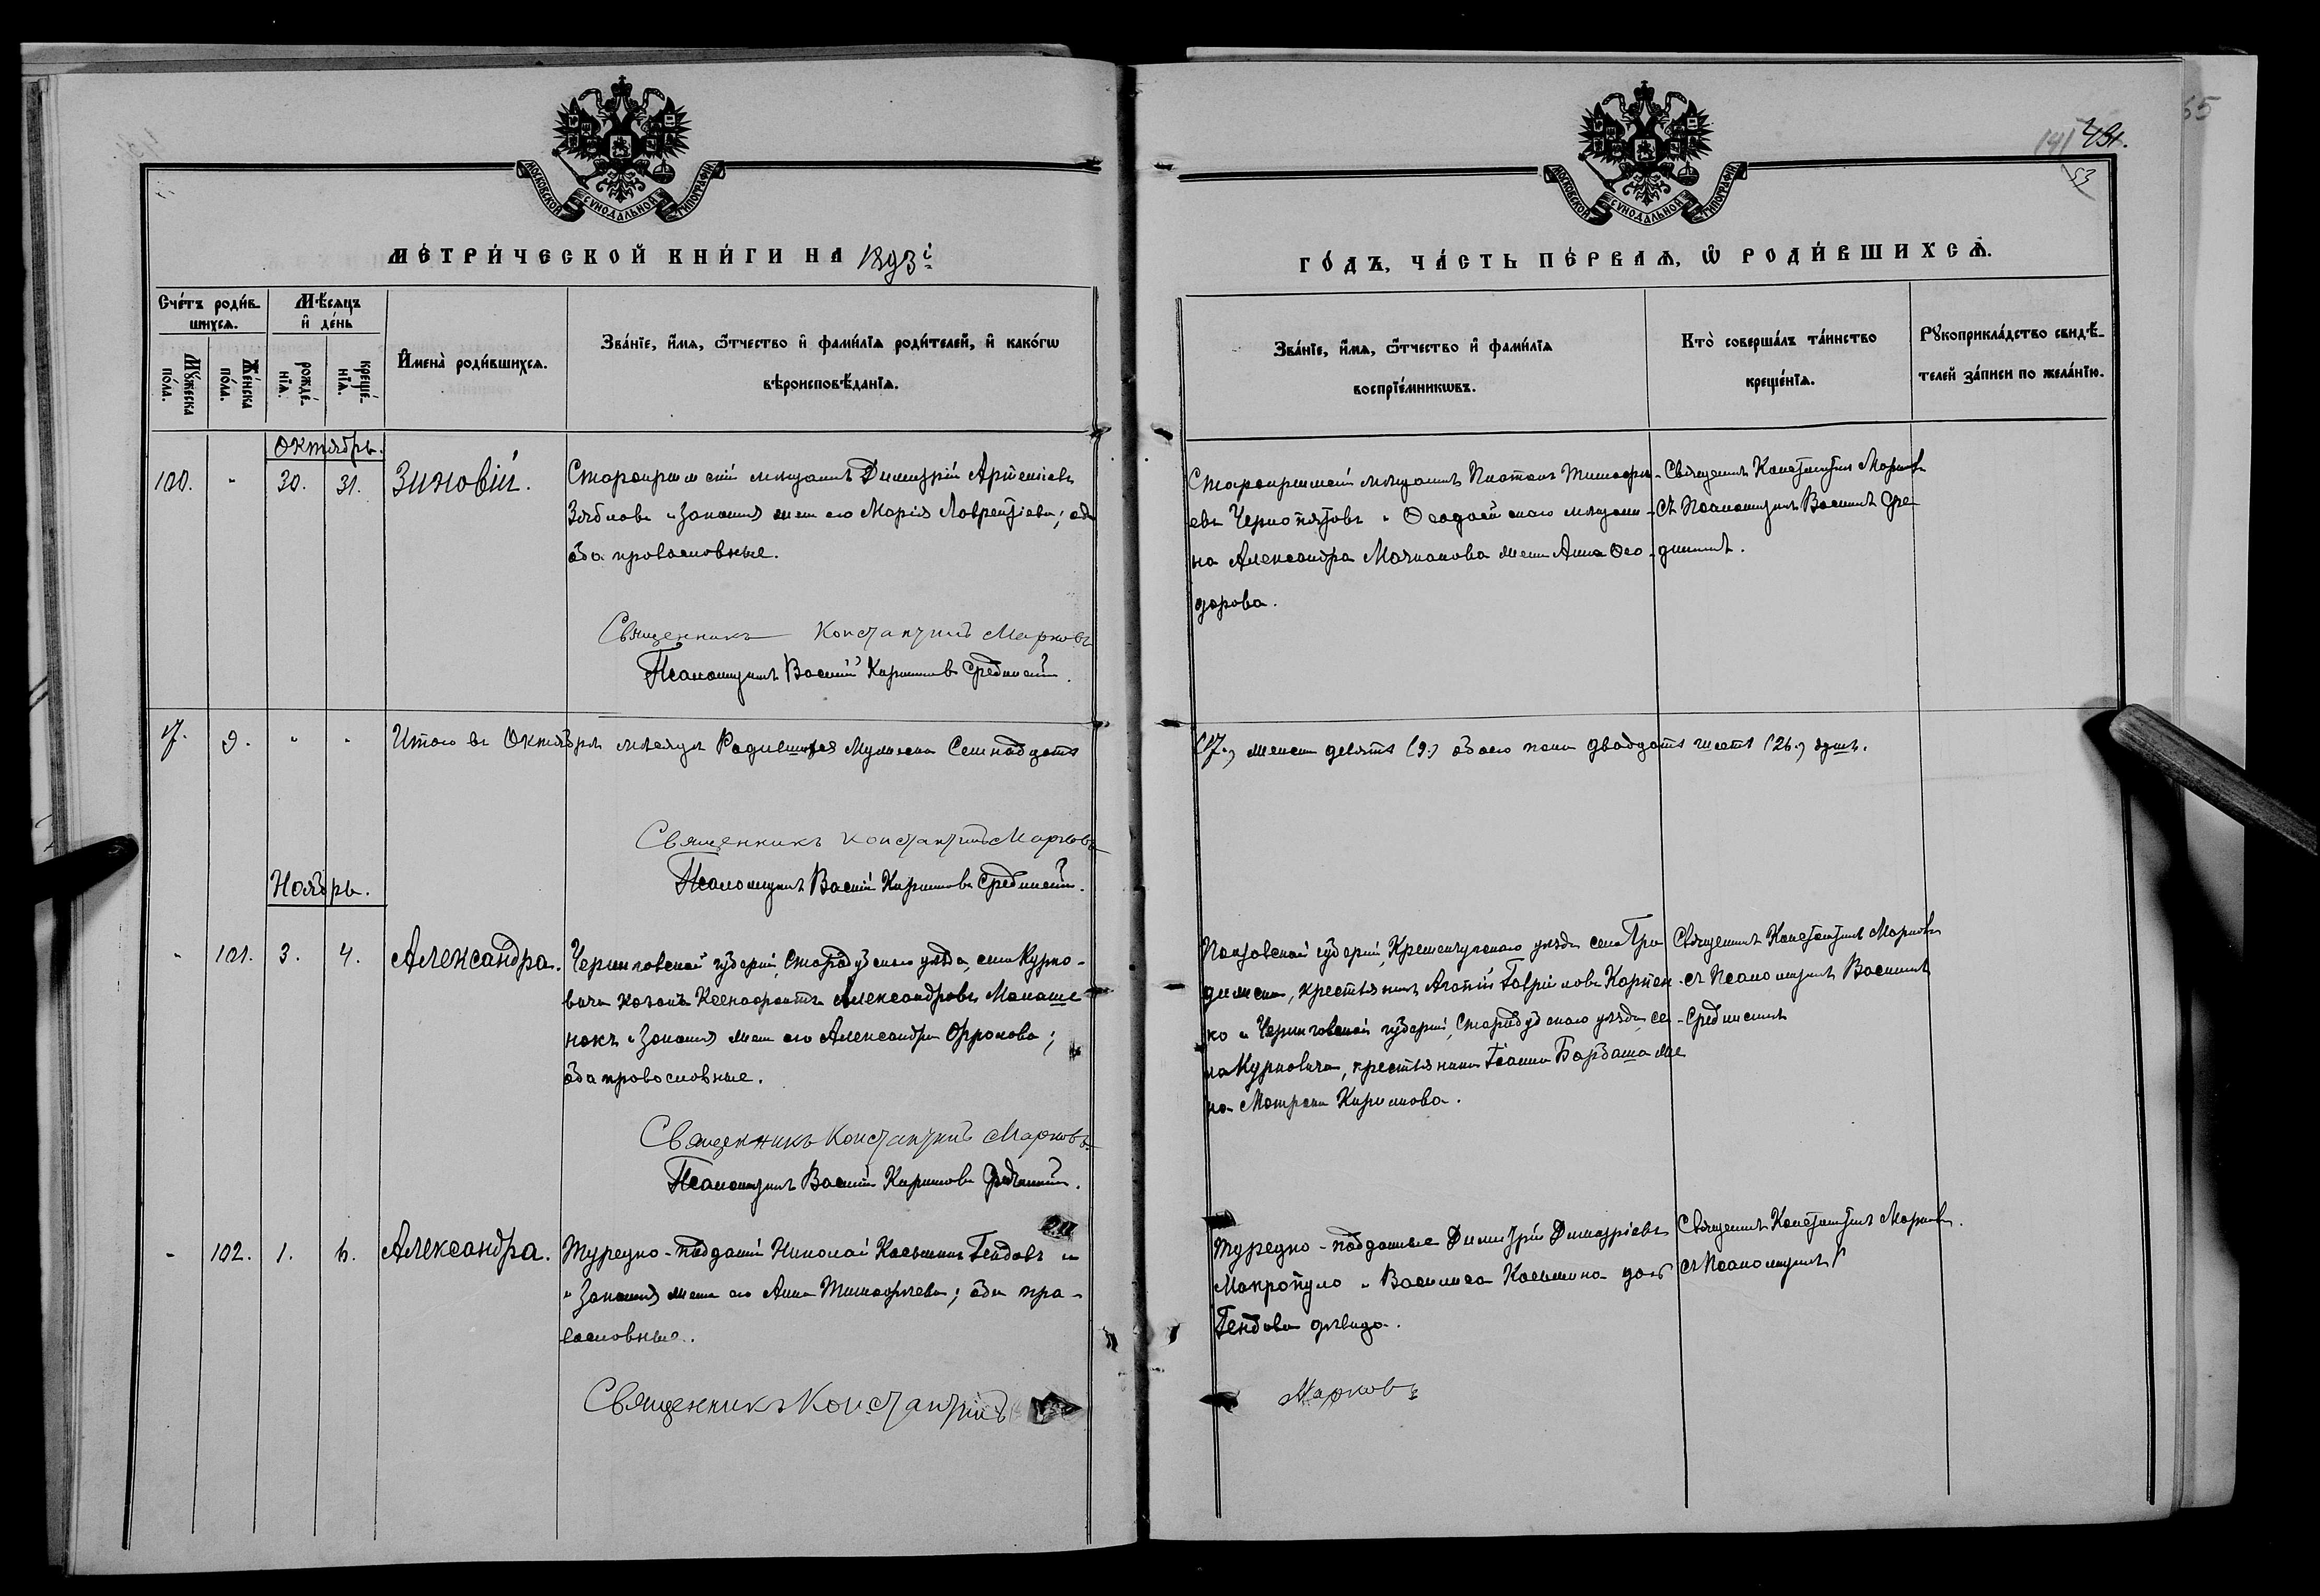 МОСКОВСКОЙ СѴНОДАЛЬНОЙ ТИПОГРАФІИ
МЕ́ТРИ́ЧЕСКОЙ КНИ́ГИ НА 1893й
Сче́тъ роди́в-
шихсѧ.
Мꙋ́жеска
по́ла.
Же́нска
по́ла.
Мѣ́сѧцъ
и҆ де́нь
рожде́-
нїѧ.
креще́-
нїѧ.
И҆мена̀ роди́вшихсѧ.
Зва́нїе, и҆́мѧ, ѻ҆́тчество и҆ фами́лїѧ роди́телей, и҆ како́гѡ
вѣроисповѣ́данїѧ.
Октябрь.
100. " 30. 31. Зиновій.
Старокрымскій мѣщанинъ Димитрій Арсеніевъ
Зяблова и законная жена его Марія Лаврентіева;
оба православные.
Священникъ Константинъ Марковъ
Псаломщикъ Василій Кириловъ Срединскій.
17. 9. " " Итого въ Октябрѣ мѣсяцѣ Родившихся Мужеска Семнадцать
Священникъ Константинъ Марковъ
Псаломщикъ Василій Кириловъ Срединскій.
Ноябрь.
" 101. 3. 4. Александра.
Черниговской губерніи, Стародубскаго уѣзда, села Курко-
вичи козакъ Ксенофонтъ Александровъ Манаше
нокъ и законная жена его Александра
оба православные.
Священникъ Константинъ Марковъ
Псаломщикъ Василій Кириловъ Срединскій.
" 102. 1. 6. Александра.
Турецко-подданный Николай Косьминъ Гендовъ и
и законная жена его Анна Тимофеева; оба пра-
вославные.
Священникъ Константинъ
141 431.
53
65
МОСКОВСКОЙ СѴНОДАЛЬНОЙ ТИПОГРАФІИ
ГО́ДЪ, ЧА́СТЬ ПЕ́РВАѦ, Ѡ҆ РОДИ́ВШИХСѦ.
Зва́нїе, и҆́мѧ, ѻ҆́тчество и҆ фами́лїѧ
воспрїе́мникѡвъ.
Кто̀ соверша́лъ та́инство
креще́нїѧ.
Рꙋкоприкла́дство свидѣ́-
телей за́писи по жела́нїю.
Старокрымскій мѣщанинъ Платонъ Тимофе-
евъ Чернопятовъ и Ѳеодосійскаго мѣщани-
на Александра Мачканова жена Анна Ѳео-
дорова.
Священникъ Константинъ Марковъ
съ Псаломщикомъ Василіемъ Сре-
динскимъ.
(17.) женска девять (9.) обоего пола двадцать шесть (26.) душъ.
Полтавской губерніи, Кременчугскаго уѣзда села
крестьянинъ Агапій Гавріиловъ Карпен-
ко и Черниговской губерніи, Стародубскаго уѣзда, се-
ла Курковичи, крестьянина Іоанна Бардаша же
на Матрона Кирилова.
Священникъ Константинъ Марковъ
съ Псаломщикомъ Василіемъ
Срединскимъ
Турецко-подданные Димитрій Димитріевъ
Макропуло и Василиса Косьмина дочь
Гендова дѣвица.
Священникъ Константинъ Марковъ.
съ Псаломщикомъ
Марковъ